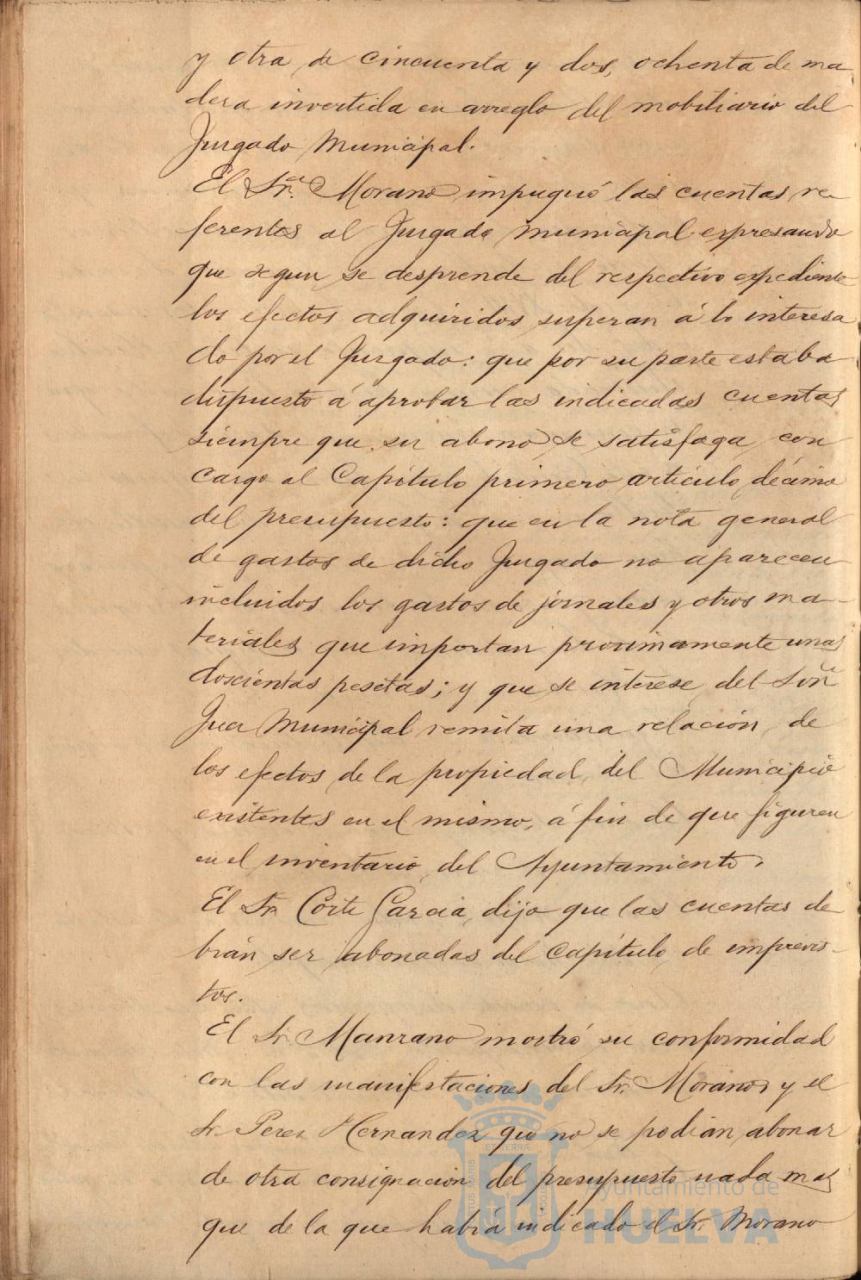 y otra de cincuenta y dos, ochenta de ma
dera invertida en arreglo del mobiliario del
Juzgado Municipal.
El Sr. Morano impugnó las cuentas re
ferentes al Juzgado municipal expresando
que segun se desprende del respectivo expediente
los efectos adquiridos superan á lo interesa
do por el Juzgado: que por su parte estaba
dispuesto á aprobar las indicadas cuentas
siempre que su abono se satisfaga con
cargo al Capítulo primero artículo décimo
del presupuesto: que en la nota general
de gastos de dicho Juzgado no aparecen
incluidos los gastos de jornales y otros ma-
teriales que importan proximamente unas
doscientas pesetas; y que se interese del Señr
Juez Municipal remita una relación de
los efectos de la propiedad del Municipio
existentes en el mismo, á fin de que figuren
en el inventario del Ayuntamiento.
El Sr. Corte García dijo que las cuentas de
brán ser abonadas del capítulo de imprevis-
tos.
El Sr. Manzano mostró su conformidad
con las manifestaciones del Sr. Morano y el
Sr. Perez Hernandez que no se podian abonar
de otra consignación del presupuesto nada mas
que de la que habrá indicado el Sr. Morano
Ayuntamiento de
HUELVA